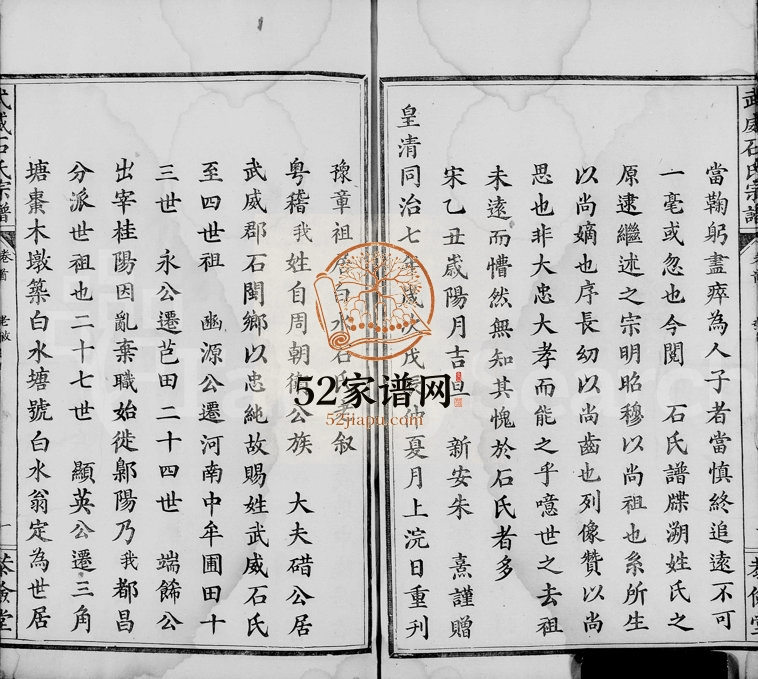 武威石氏宗譜
當鞠躬盡瘁為人子者當慎終追遠不可
一毫或忽也今閱　石氏譜牒溯姓氏之
原逮繼述之宗明昭穆以尚祖也系所生
以尚嫡也序長幼以尚齒也列像贊以尚
思也非大忠大孝而能之乎噫世之去祖
未遠而懵然無知其愧於石氏者多
宋乙丑歲陽月吉旦　新安朱　熹謹贈
皇清同治七年歲次戊辰仲夏月上浣日重刊
豫章祖居白水石氏老叙
粵稽我姓自周朝衛公族　大夫碏公居
武威郡石閏鄉以忠純故賜姓武威石氏
至四世祖　豳源公遷河南中牟圃田十
三世　永公遷芑田二十四世　端餙公
出宰桂陽因亂棄職始徙鄡陽乃我都昌
分派世祖也二十七世　顯英公遷三角
塘棗木墩築白水塘號白水翁定為世居
武威石氏宗譜
卷首
老敘
一
52家谱网
52jiapu.com